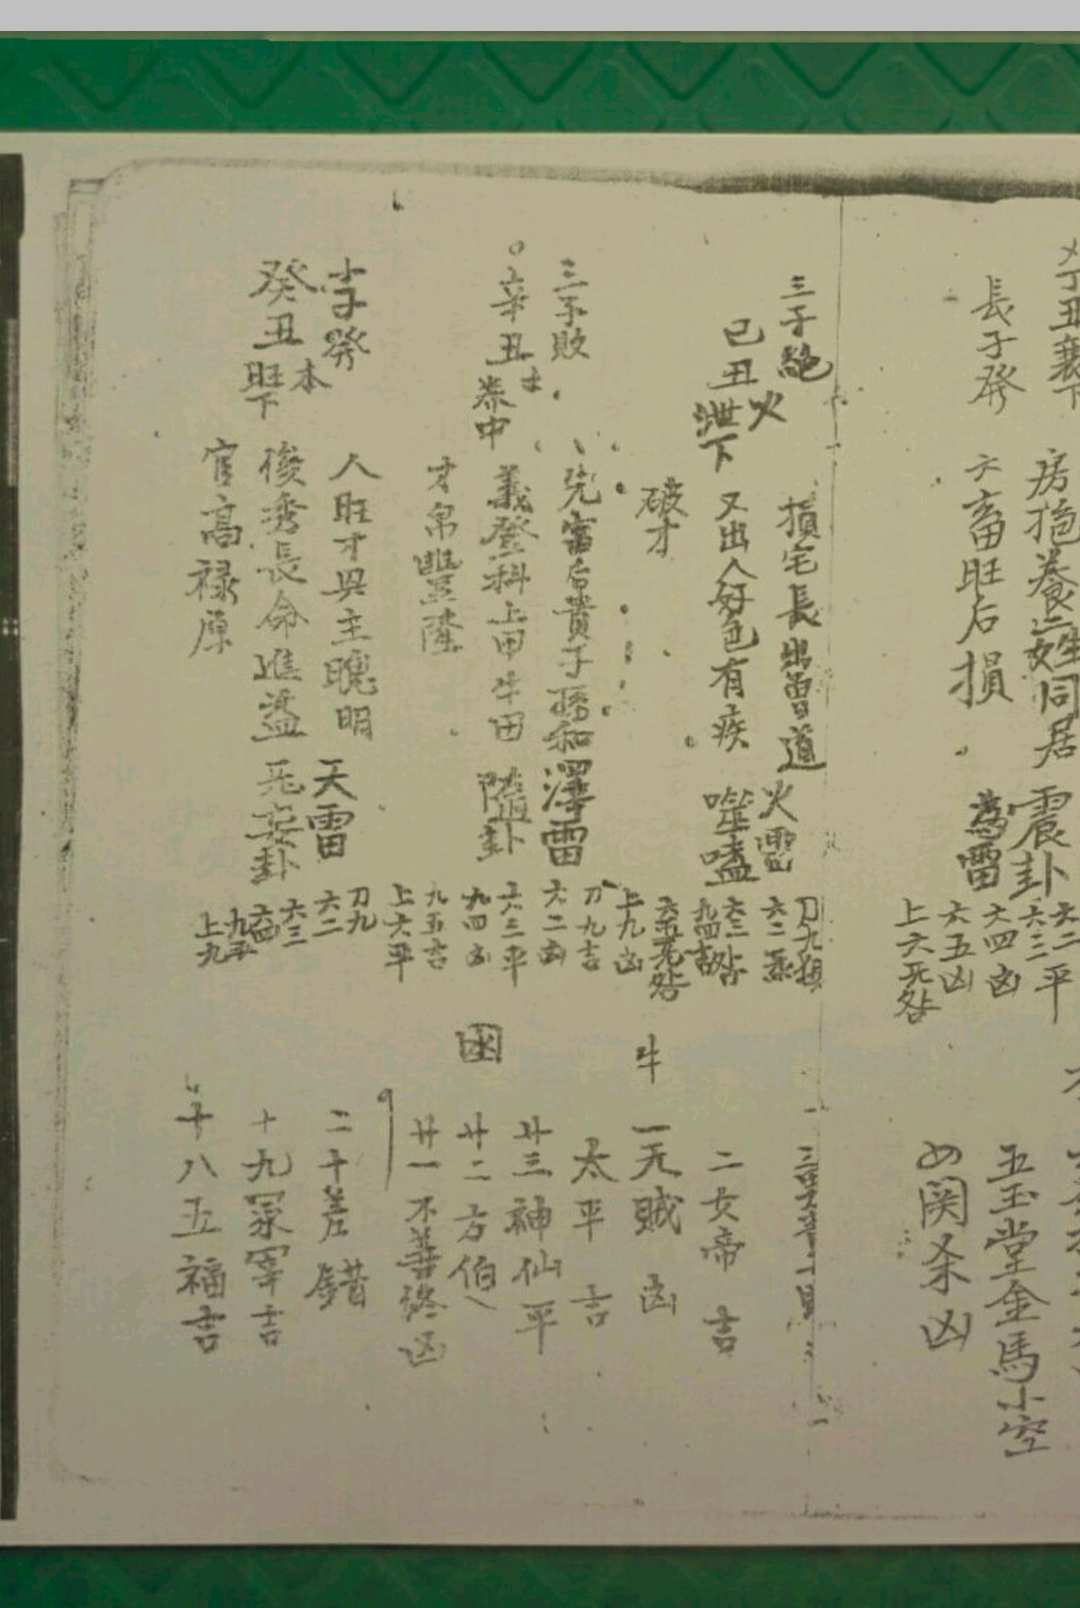 丁丑衰下
長子発
房抱養二姓同居
六畜旺后損
震卦
為雷
六二
六三平
六四凶
六五凶
上六死咎
五玉堂金馬小空
四関杀凶
三子絶
己丑火
泄下
損宅長出曾道
又出人好色有疾
破才
火雷
噬嗑
刀九損
六二
六三咎
九四吉
上九凶
二女帝 吉
牛
一元賊 凶
太平 吉
三子敗
辛丑土
养中
先富后貴子孫和
義登科上甲牛田
才帛豐隆
澤雷
隨卦
刀九吉
六二凶
六三平
九四凶
九五吉
上六平
廿三神仙平
廿二方伯
廿一不善終凶
季發
癸丑本
旺下
人旺才興主聰明
俊秀長命進益
官高禄厚
天雷
无妄卦
刀九
六二
六三
九四
九五平
上九
二十差錯
十九冢宰吉
十八五福吉